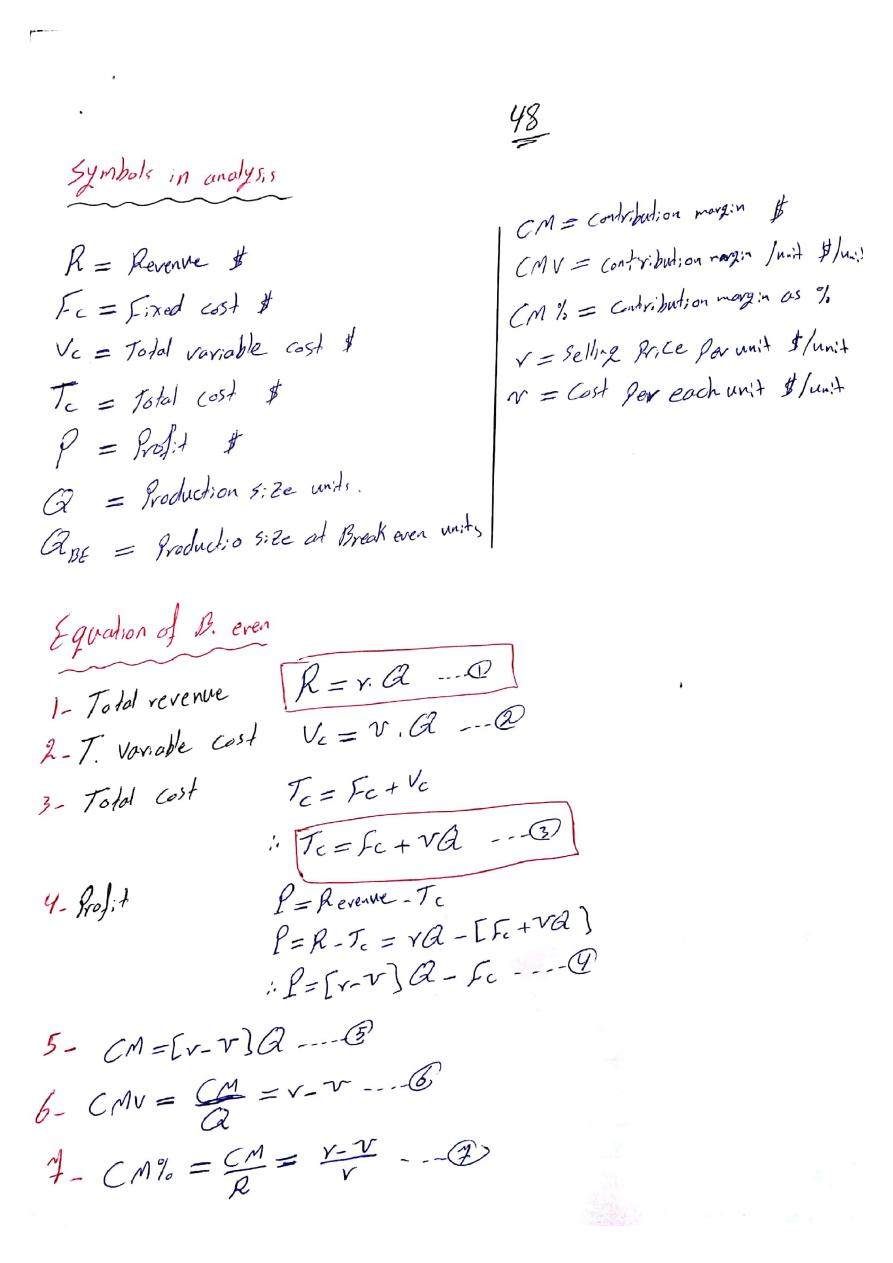 48
Symbols in analysis
R = Revenue $
Fc = Fixed cost $
Vc = Total variable cost $
Tc = Total cost $
P = Profit $
Q = Production size units.
Q_BE = Productio size at Break even units
CM = Contribution margin $
CMV = Contribution margin /unit $/unit
CM% = Contribution margin as %
r = Selling Price Per unit $/unit
v = Cost Per each unit $/unit
Equation of B. even
1- Total revenue R = r. Q ....①
2- T. variable cost Vc = v . Q ...②
3- Total cost Tc = Fc + Vc
∴ Tc = Fc + vQ ...③
4- Profit P = Revenue - Tc
P = R - Tc = rQ - [Fc + vQ]
∴ P = [r-v] Q - Fc ....④
5- CM = [r-v] Q .....⑤
6- CMV = CM/Q = r-v ....⑥
7- CM% = CM/R = r-v/r ...⑦